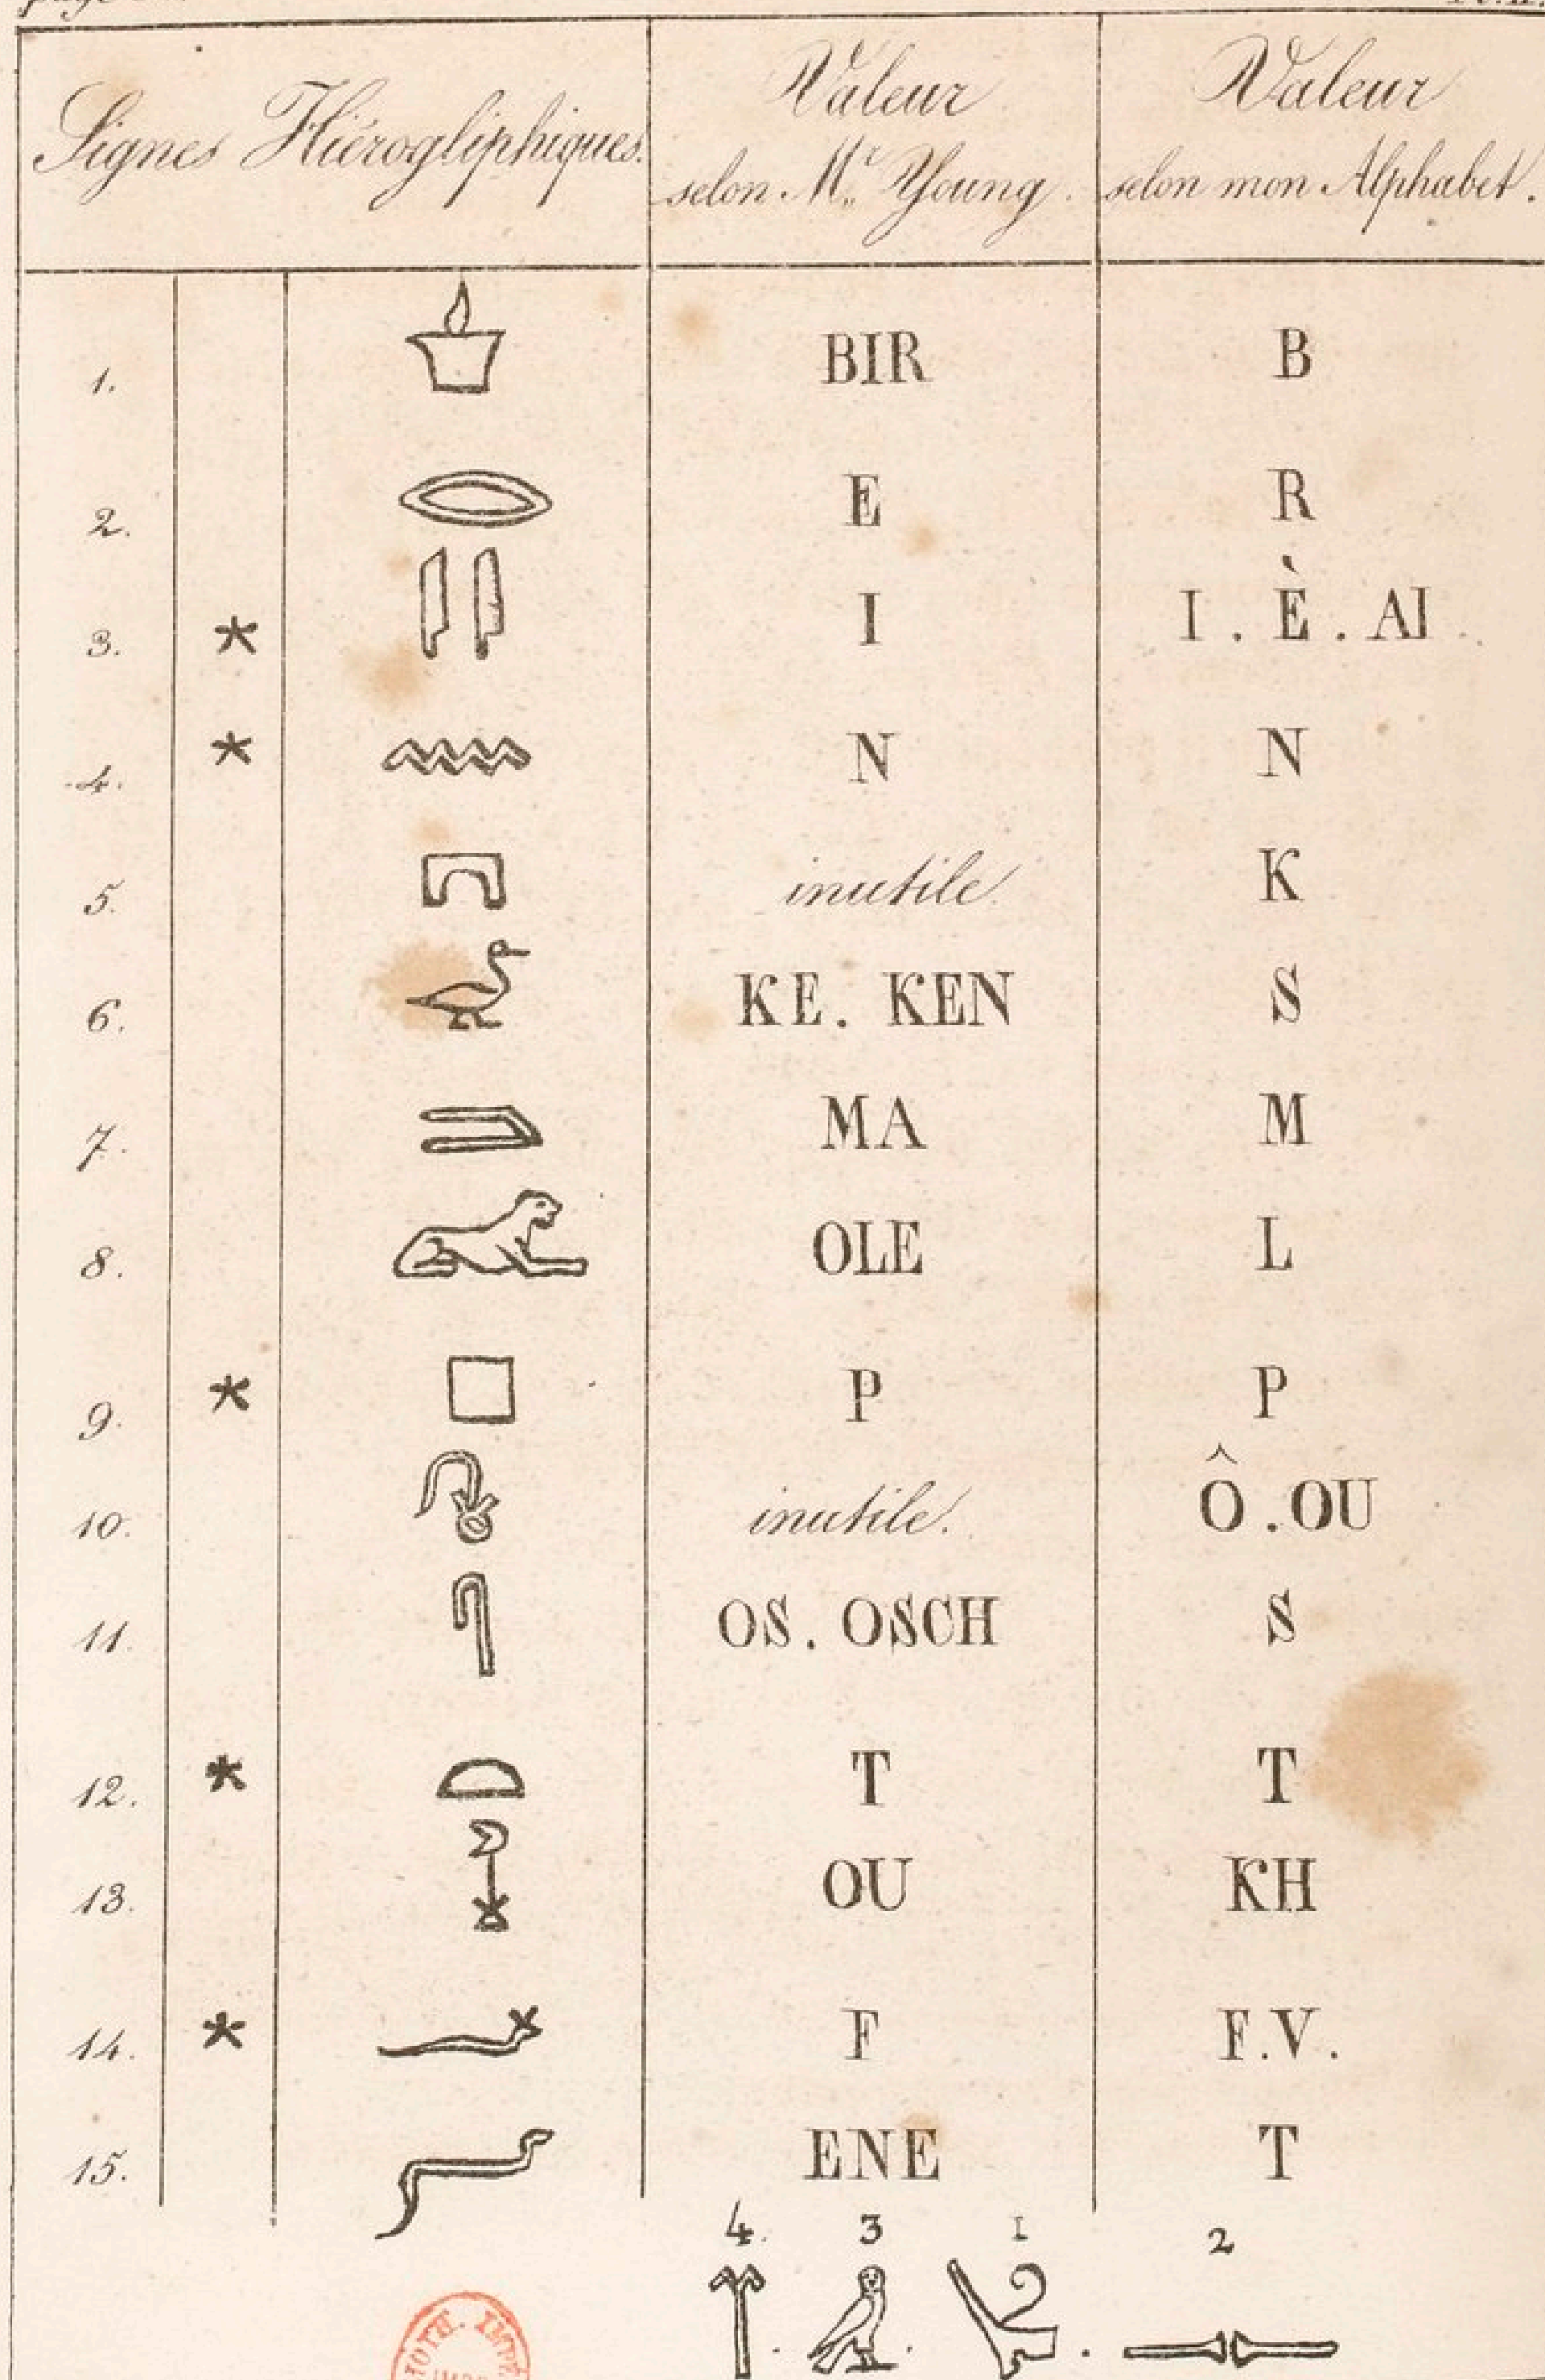 Signes Hiérogliphiques.
Valeur
selon Mr. Young.
Valeur
selon mon Alphabet.
1. BIR B
2. E R
3. * I I. È. AI
4. * N N
5. inutile. K
6. KE. KEN S
7. MA M
8. OLE L
9. * P P
10. inutile. Ô. OU
11. OS. OSCH S
12. * T T
13. OU KH
14. * F F.V.
15. ENE T
4. 3 1 2